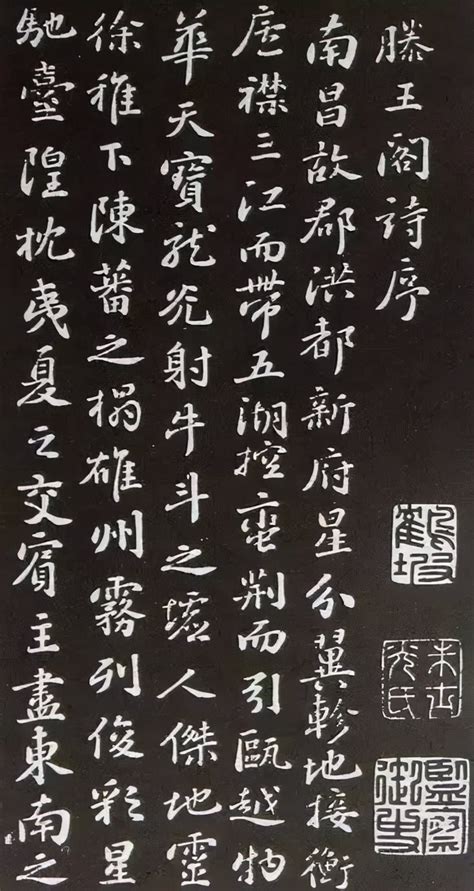 滕王閣詩序
南昌故郡洪都新府星分翼軫地接衡
廬襟三江而帶五湖控蛮荆而引甌越物
華天寶龍光射牛斗之墟人傑地靈
徐稚下陳蕃之榻雄州霧列俊彩星
馳臺隍枕夷夏之交賓主盡東南之
監察御史